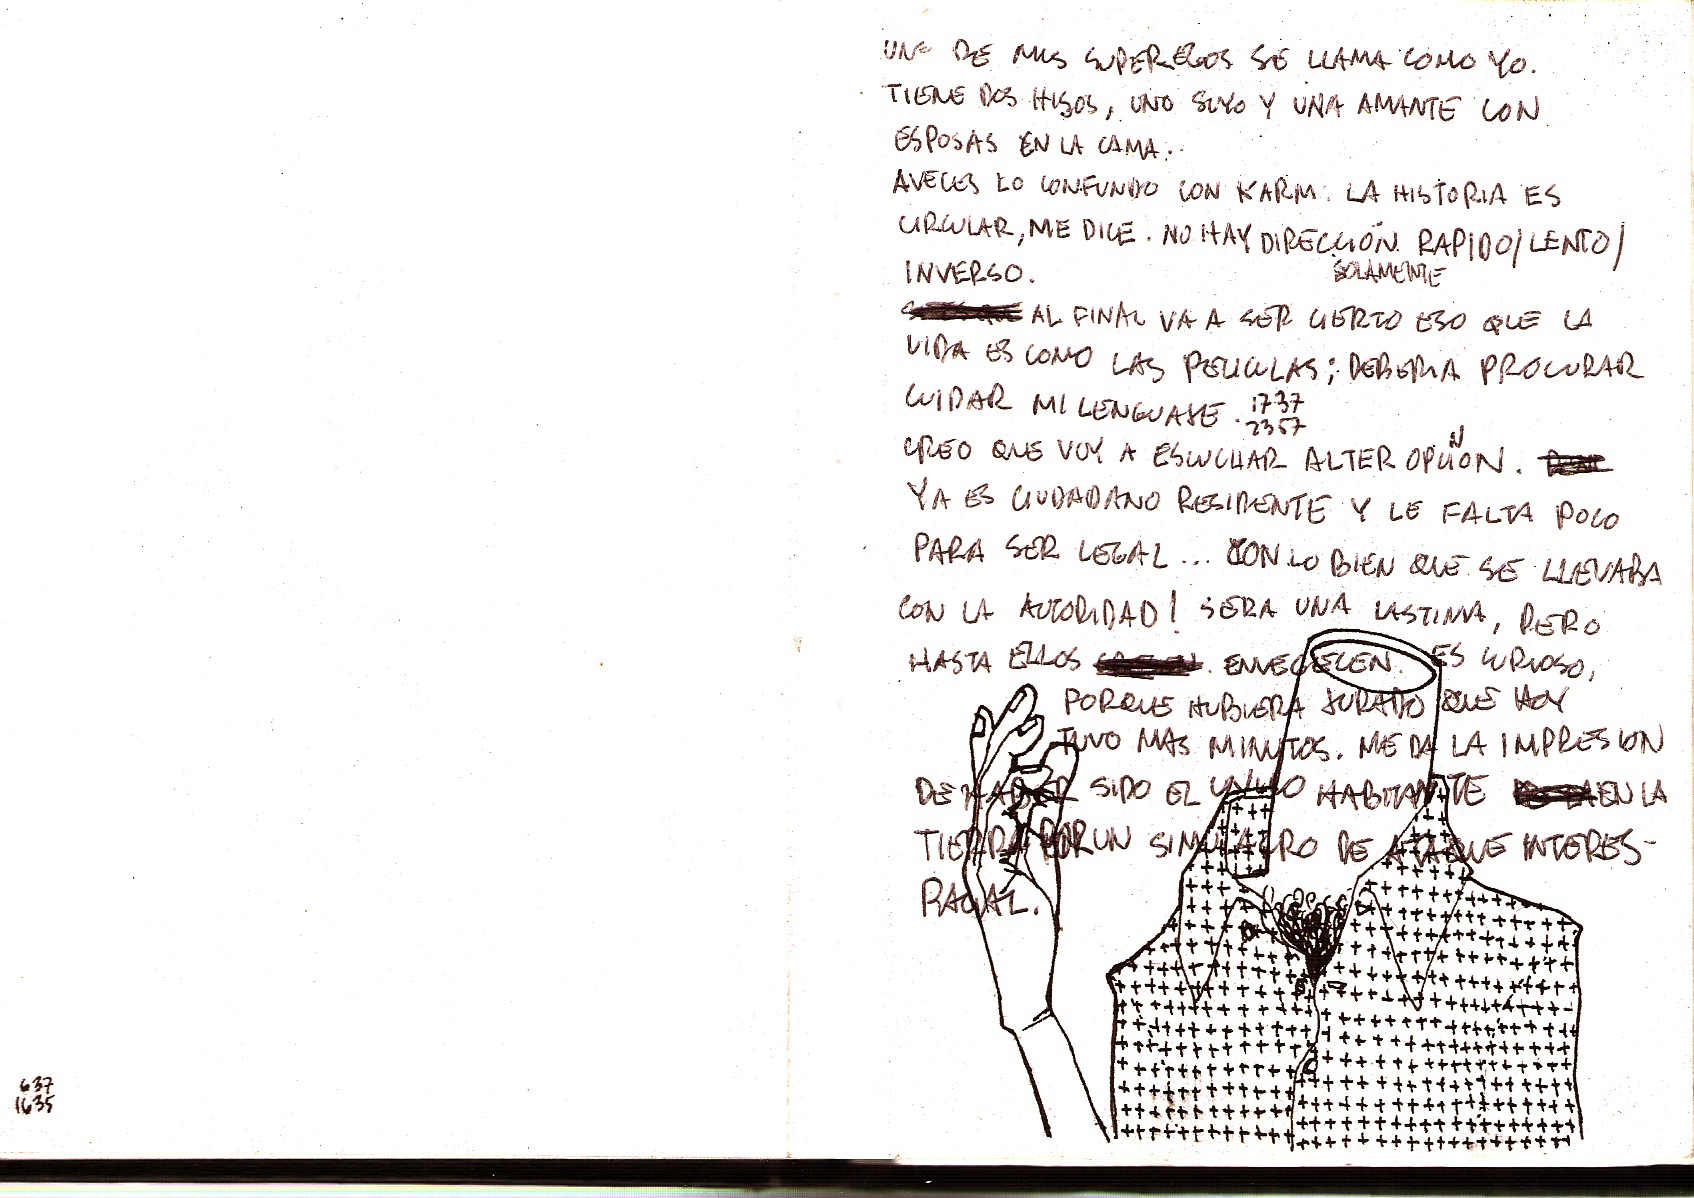 UNO DE MIS SUPEREGOS SE LLAMA COMO YO.
TIENE DOS HIJOS, UNO SUYO Y UNA AMANTE CON
ESPOSAS EN LA CAMA..
AVECES LO CONFUNDO CON KARM. LA HISTORIA ES
CIRCULAR, ME DICE. NO HAY DIRECCIÓN. RAPIDO/LENTO/
INVERSO.
SOLAMENTE
AL FINAL VA A SER CIERTO ESO QUE LA
VIDA ES COMO LAS PELICULAS; DEBERIA PROCURAR
CUIDAR MI LENGUAJE. 1737
2357
CREO QUE VOY A ESCUCHAR ALTER OPCIÓN.
N
YA ES CIUDADANO RESIDENTE Y LE FALTA POCO
PARA SER LEGAL... CON LO BIEN QUE SE LLEVABA
CON LA AUTORIDAD! SERA UNA LASTIMA, PERO
HASTA ELLOS ENVEGECEN. ES CURIOSO,
PORQUE HUBIERA JURADO QUE HOY
TUVO MAS MINUTOS. ME DA LA IMPRESION
DE HABER SIDO EL UNICO HABITANTE EN LA
TIERRA POR UN SIMULACRO DE ATAQUE INTERES-
RACIAL.
637
1635